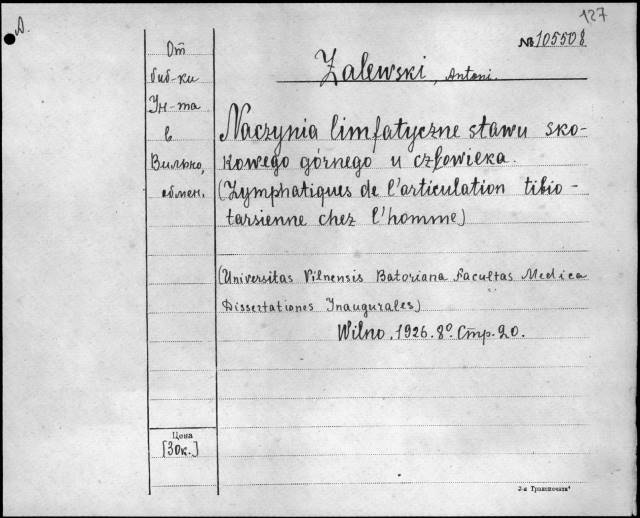 127
D.
№ 105508
Zalewski, Antoni.
От
биб-ки
Ун-та
в
Вильно,
обмен.
Naczynia limfatyczne stawu sko-
kowego górnego u człowieka.
(Lymphatiques de l'articulation tibio-
tarsienne chez l'homme)
(Universitas Vilnensis Batoriana Facultas Medica
Dissertationes Inaugurales)
Wilno. 1926. 8º. Стр. 20.
Цена
[30к.]